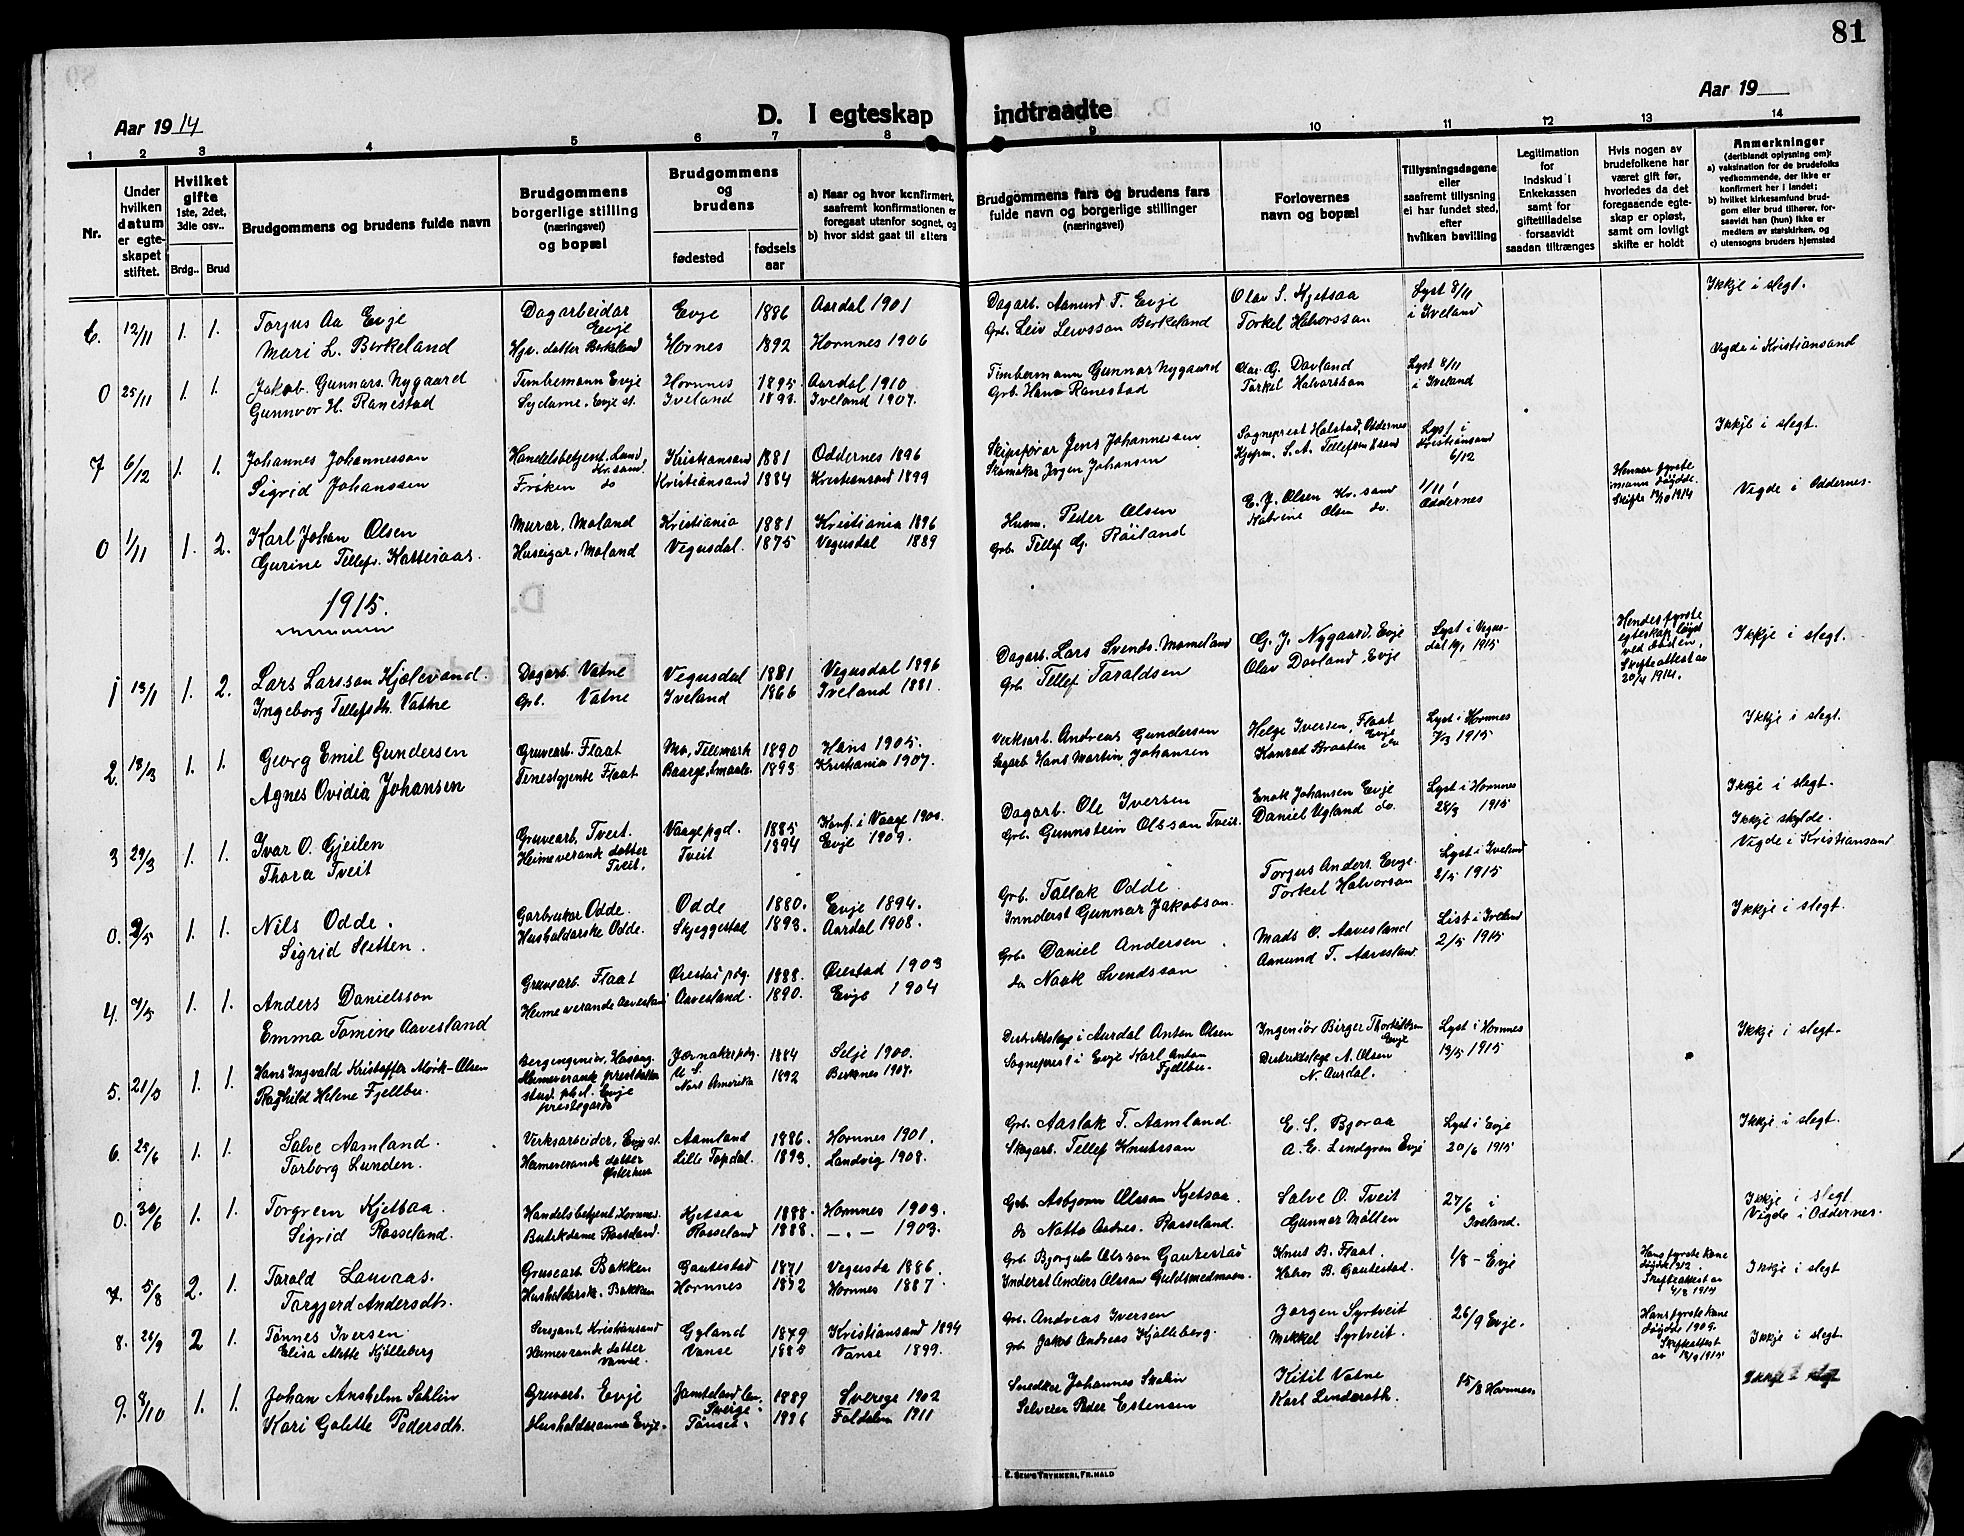 81
Aar 1914
D. I egteskap indtraadte
Aar 19
1 2 3 4 5 6 7 8 9 10 11 12 13 14
Nr.
Under hvilken datum er egteskapet stiftet.
Hvilket gifte 1ste, 2det, 3die osv..
Brdg.. Brud
Brudgommens og brudens fulde navn
Brudgommens borgerlige stilling (næringsvei) og bopæl
Brudgommens og brudens
fødested
fødsels aar
a) Naar og hvor konfirmert, saafremt konfirmationen er foregaat utenfor sognet, og
b) hvor sidst gaat til alters
Brudgommens fars og brudens fars fulde navn og borgerlige stillinger (næringsvei)
Forlovernes navn og bopæl
Tillysningsdagene eller saafremt tillysning ei har fundet sted, efter hvilken bevilling
Legitimation for Indskud i Enkekassen samt for giftetilladelse forsaavidt saadan tiltrænges
Hvis nogen av brudefolkene har været gift før, hvorledes da det foregaaende egteskap er opløst, samt om lovligt skifte er holdt
Anmerkninger (deriblandt oplysning om):
a) vaksination for de brudefolks vedkommende, der ikke er konfirmert her i landet;
b) hvilket kirkesamfund brudgom eller brud tilhører, forsaavidt han (hun) ikke er medlem av statskirken, og
c) utensogns bruders hjemsted
6. 12/11 1. 1. Torjus Aa Evje Dagarbeidar Evje Evje 1886 Aardal 1901 Dagarb. Aamund T. Evje Olav S. Kjetsaa Lyst 8/11 i Iveland Ikkje i slegt.
Mari L. Berkeland Hjv. datter Berkeland Hornes 1892 Hornnes 1906 Grb. Leiv Leivsson Berkeland Torkel Halvorsson
0 25/11 1. 1. Jakob Gunnars. Nygaard Timbemann Evje Hornnes 1895 Aardal 1910 Timbermann Gunnar Nygaard Olav G. Dovland Lyst 8/11 i Iveland Vigde i Kristiansand
Gunnvor H. Ranestad Sydame, Evje st. Iveland 1893. Iveland 1907. Grb. Hans Ranestad Torkel Halvorsson
7 6/12 1. 1. Johannes Johannesson Handelsbetjent, Lund, Kr.sand, Kristiansand 1881 Oddernes 1896 Skipsførar Jens Johannesen Sogneprest Halstad, Oddernes Lyst i Kristiansand 6/12 Ikkje i slegt.
Sigrid Johanssen Frøken do Kristiansand 1884 Kristiansand 1899 Skomakar Jørgen Johansen Kjøpm. S. A. Tellefsen Krsand
0 1/11 1. 2. Karl Johan Olsen Murar, Moland Kristiania 1881 Kristiania 1896 Husm. Peder Olsen E. J. Olsen Kr. sand 1/11 i Oddernes Hennar fyrste mann døydde. Skifte 12/10 1914 Vigde i Oddernes.
Gurine Tellefs. Katteraas. Huseigar, Moland Vegusdal. 1875 Vegusdal 1889 Grb. Tellef G. Røiland Katrine Olsen do.
1915.
1 13/1 1. 2. Lars Larsson Kjølevand. Dagarb. Vatne Vegusdal 1881 Vegusdal 1896 Dagarb. Lars Svends. Momeland G. J. Nygaard, Evje Lyst i Vegusdal 10/1 1915 Hendes fyrste egteskap løyst ved døden, Skifteattest av 20/4 1914. Ikkje i slegt.
Ingeborg Tellefsdtr. Vatne Grb. Vatne Iveland 1866 Iveland 1881. Grb. Tellef Taraldsen Olav Dovland, Evje
2. 13/3 1. 1. Georg Emil Gundersen Gruvearb. Flaat Mo, Telemark 1890 Hans 1905. Verksarb. Andreas Gundersen Helge Iversen, Flaat Evje Lyst i Hornnes 7/3 1915 Ikkje i slegt.
Agnes Ovidia Johansen Tenestgjente Flaat Baarge, Smaale. 1893 Kristiania 1907. Sagarb. Hans Martin Johansen Konrad Braaten do
3 29/3 1. 1. Ivar O. Gjeilen Gruvearb. Tveit. Vaage pgd. 1885 Konf. i Vaage 1900. Dagarb. Ole Iversen Enok Johansen Evje Lyst i Hornnes 28/3 1915 Ikkje i slegt.
Thora Tveit Heimeverank datter Tveit. Tveit 1894 Evje 1909. Grb. Gunnstein Olsson Tveit. Daniel Ugland do.
0. 2/5 1. 1. Nils Odde. Garbrukar Odde. Odde 1880. Evje 1894. Grb. Tallak Odde. Torjus Anders. Evje. Lyst i Iveland 2/5 1915 Ikkje skylde. Vigde i Kristiansand
Sigrid Sletten. Husholdarske Odde. Skjeggestad 1893. Aardal 1908. Innderst Gunnar Jakobson. Torkel Halvorson
4. 7/5 1. 1. Anders Danielsson Gruvearb. Flaat Ørestad pdg. 1888. Ørestad 1903 Grb. Daniel Andersen Mads O. Aavesland List i Iveland 2/5 1915 Ikkje i slegt.
Emma Tomine Aavesland Heimeverande Aavesland Aavesland. 1890. Evje 1904 do Naak Svendsson Aanund T. Aavesland
5. 21/5 1. 1. Hans Ingvald Kristoffer Mørk-Olsen Bergingeniør, Hosang. Jornakr pdg. 1884 Selje 1900. Distriktslege i Aurdal Anton Olsen Ingeniør Birger Thorkildsen Evje Lyst i Hornnes 13/5 1915 Ikkje i slegt.
Raghild Helene Fjellbu. Heimeverank prestdatter stud. ph.d. Evje prestegard U. S. Nord Amerika 1892 Berknes 1907. Sogneprest i Evje Karl Anton Fjellbu. Distriktslege A. Olsen N. Aurdal.
6. 25/6 1. 1. Salve Aamland. Verksarbeider, Evje st. Aamland 1886. Hornnes 1901. Grb. Aaslak T. Aamland. E. S. Bjoraa Lyst i Evje 20/6 1915 Ikkje i slegt.
Torborg Lunden. Heimeverank datter Østerhus Lille Topdal. 1893. Landvig 1908. Skogarb. Tellef Knutsson A. E. Lindgren Evje
0. 30/6 1. 1. Torgrem Kjetsaa Handelsbetjent, Hornnes. Kjetsaa 1888. Hornnes 1903. Grb. Asbjørn Olsson Kjetsaa. Salve O. Tveit 27/6 i Iveland. Ikkje i slegt Vigde i Oddernes.
Sigrid Rosseland. Butikdame Rosseland. Rosseland 1888. — . — 1903. do Notto Aadnes. Rosseland. Gunnar Mølten
7. 5/8 2. 1. Tarald Lauvaas. Gruvearb. Bakken Gautestad 1871 Vegusda 1886. Grb. Bjorgulv Olsson Gautestad Knut B. Flaat. 1/8 - Evje Hans fyrste kone døydde 1912. Skifteattest av 4/8 1915 Ikkje i slegt
Torgjerd Andersdtr. Husholdersk. Bakken Hornnes 1872 Hornnes 1887 Inderst Anders Olsson Guldsmedmoen. Halvor B. Gautestad.
8. 26/9 2 1. Tønnes Iversen. Sersjant, Kristiansand Gyland 1879 Kristiansand 1894 Grb. Andreas Iversen Jørgen Syrtveit 26/9 Evje. Hans fyrste kone døydde 1909. Skifteattest av 18/9 1915 Ikkje i slegt
Elisa Mette Kjølleberg Heimeverank datter Vanse. Vanse 1885 Vanse 1899. Grb. Jakob Andreas Kjølleberg. Mikkel Syrtveit.
9. 8/10 1. 1. Johan Anshelm Sahlin Gruvarb. Evje Jamteland len Sverige. 1889 Sverege 1902 Snedker Johannes Skolin Kitil Vatne 15/8 Hornnes Ikkje i slegt
Kari Galette Pedersdtr. Husholderanna Evje. Tønset. 1896 Foldalen 1911 Selveier Peder Estensen Karl Linderoth.
E. SEM'S TRYKKERI, FR.HALD